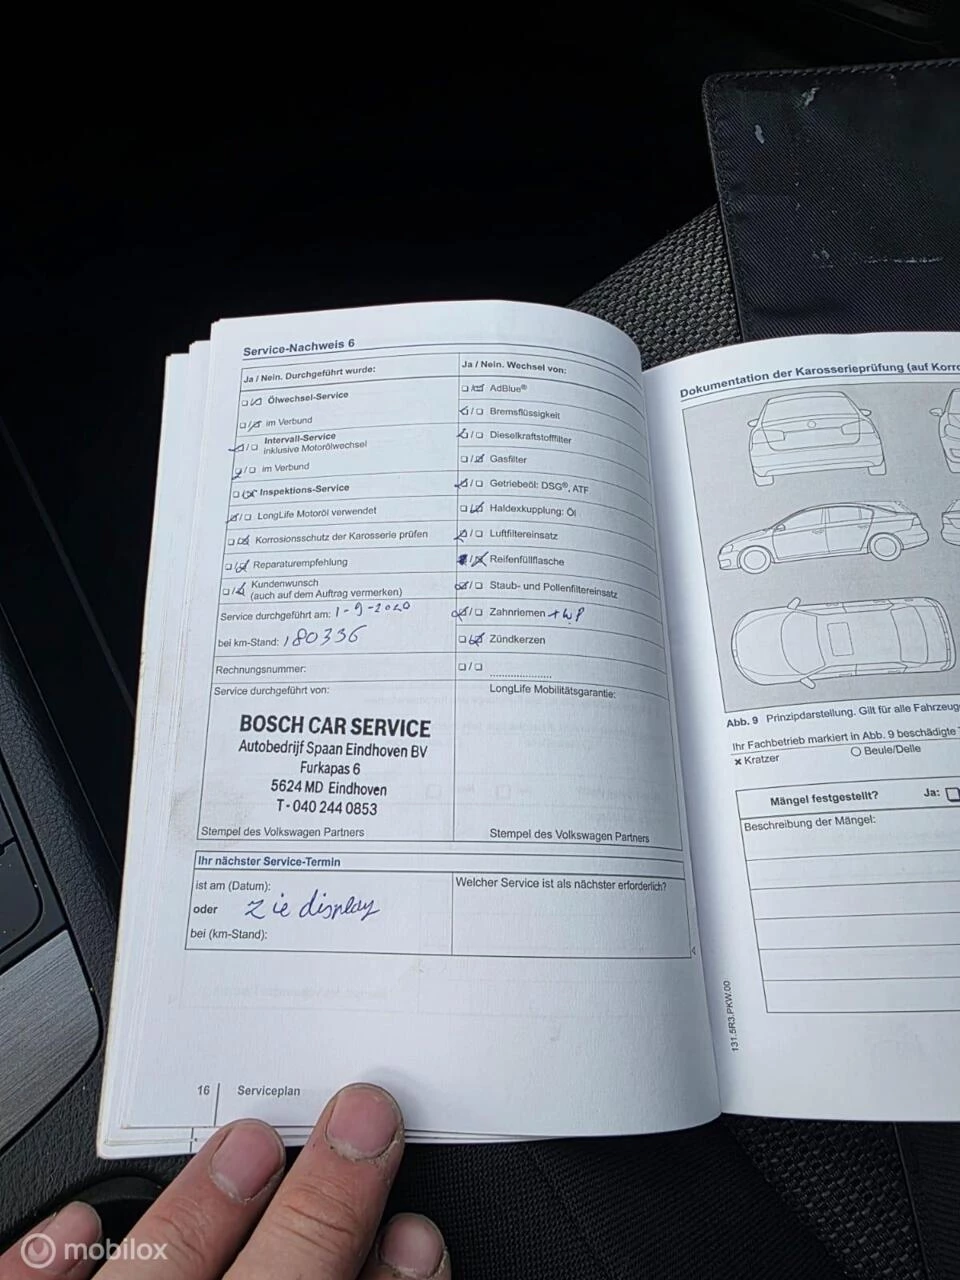 Service-Nachweis 6
Ja / Nein. Durchgeführt wurde:
Ölwechsel-Service
im Verbund
Intervall-Service
inklusive Motorölwechsel
im Verbund
Inspektions-Service
LongLife Motoröl verwendet
Korrosionsschutz der Karosserie prüfen
Reparaturempfehlung
Kundenwunsch
(auch auf dem Auftrag vermerken)
Service durchgeführt am: 1-9-2020
bei km-Stand: 180336
Rechnungsnummer:
Service durchgeführt von:
BOSCH CAR SERVICE
Autobedrijf Spaan Eindhoven BV
Furkapas 6
5624 MD Eindhoven
T - 040 244 0853
Stempel des Volkswagen Partners
Ja / Nein. Wechsel von:
AdBlue®
Bremsflüssigkeit
Dieselkraftstofffilter
Gasfilter
Getriebeöl: DSG®, ATF
Haldexkupplung: Öl
Luftfiltereinsatz
Reifenfüllflasche
Staub- und Pollenfiltereinsatz
Zahnriemen + W.P
Zündkerzen
LongLife Mobilitätsgarantie:
Stempel des Volkswagen Partners
Ihr nächster Service-Termin
ist am (Datum):
oder zie display
bei (km-Stand):
Welcher Service ist als nächster erforderlich?
16 Serviceplan
Dokumentation der Karosserieprüfung (auf
Abb. 9 Prinzipdarstellung. Gilt für alle
Ihr Fachbetrieb markiert in Abb. 9 beschädigte
× Kratzer
Beule/Delle
Mängel festgestellt? Ja:
Beschreibung der Mängel:
131.5R3.PKW.00
mobilox